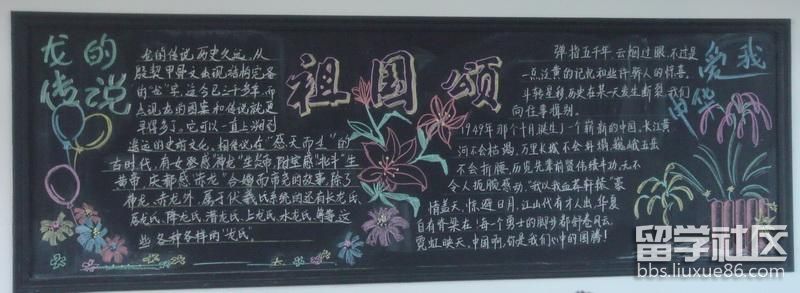 龙的
传说
龙的传说历史久远,从
殷契甲骨文出现结构完备
的“龙”字,迄今已三千多年,而
表现龙的图案和传说就更
早得多了。它可以一直上溯到
遥远的史前文化。相传说在“感天而生”的
古时代,有女登感“神龙”生炎帝,附宝感“北斗”生
黄帝,庆都感“赤龙”合婚而育尧的故事。除了
神龙、赤龙外,属于伏羲氏系统的还有长龙氏、
居龙氏、降龙氏、潜龙氏、上龙氏、水龙氏等等这
些各种各样的“龙氏”。
祖国颂
弹指五千年,云烟过眼,不过是
一点泛黄的记忆和些许骄人的惊喜。
斗转星移,历史在某一天发生断裂,我们
向往事惜别。
1949年那个十月诞生了一个崭新的中国。长江黄
河不会枯竭,万里长城不会坍塌,巍峨五岳
不会折腰,历览先辈前贤伟绩丰功,无不
令人扼腕感动。“我以我血荐轩辕”豪
情盖天,惊避日月,江山代有才人出,华夏
自有脊梁在!每个勇士的脚步都舒卷风云,
霓虹映天,中国啊,你是我们心中的图腾!
爱我
中华
留学社区
bbs.liuxue86.com